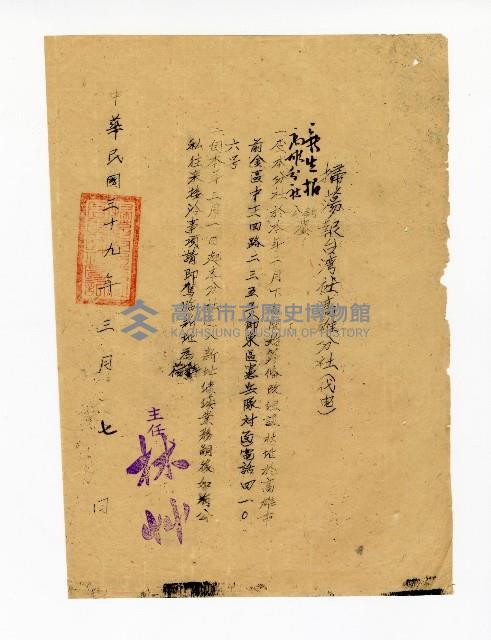 掃蕩報台灣社高雄分社(代电)
新生報
高雄分社
公鑒
一、查本分社於本年一月下
改設社址於高雄市
前金區中正四路二三五号即東區憲兵隊对面電話四一〇
六号
二、自本年二月一日起本分社
新址繼續業務嗣後如蒙公
私往來接洽事項請即駕臨新址為荷
主任
林
中華民國三十九年三月七日
高雄市立歷史博物館
KAOHSIUNG MUSEUM OF HISTORY